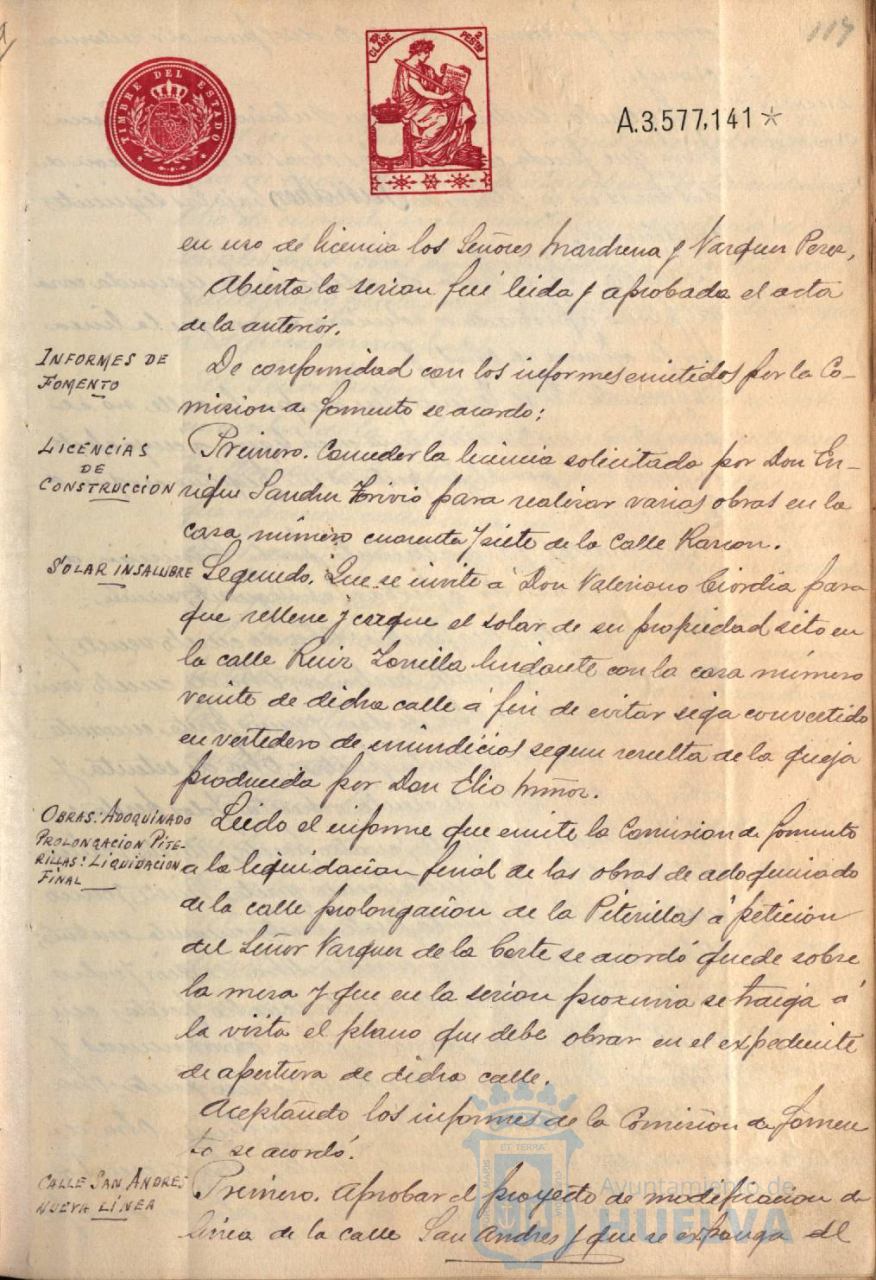 117
TIMBRE DEL ESTADO
10ª CLASE 2 PESTAS
A.3.577,141 *
en uso de licencia los Señores Mardrena y Vazquez Perez,
Abierta la sesion fué leida y aprobada el acta
de la anterior.
INFORMES DE
FOMENTO
De conformidad con los informes emitidos por la Co-
mision de fomento se acordo:
LICENCIAS
DE
CONSTRUCCION
Primero. Conceder la licencia solicitada por Don En-
rique Sandru Trivio para realizar varias obras en la
casa número cuarenta y siete de la calle Rascon.
SOLAR INSALUBRE
Segundo. Que se invite á Don Valeriano Ciordia para
que rellene y cerque el solar de su propiedad sito en
la calle Ruiz Zorrilla lindante con la casa número
veinte de dicha calle á fin de evitar siga convertido
en vertedero de inmundicias segun resulta de la queja
producida por Don Elio Muñoz.
OBRAS: ADOQUINADO
PROLONGACION PITE-
RILLAS: LIQUIDACION
FINAL
Leido el informe que emite la Comision de fomento
a la liquidacion final de las obras de adoquinado
de la calle prolongacion de la Piterillas á peticion
del Señor Vazquez de la Corte se acordó quede sobre
la mesa y que en la sesion proxima se traiga á
la vista el plano que debe obrar en el expediente
de apertura de dicha calle.
Aceptando los informes de la Comision de fomen
to se acordó.
CALLE SAN ANDRES
NUEVA LÍNEA
Primero. Aprobar el proyecto de modificacion de
linea de la calle San Andres y que se exponga al
Ayuntamiento de
HUELVA